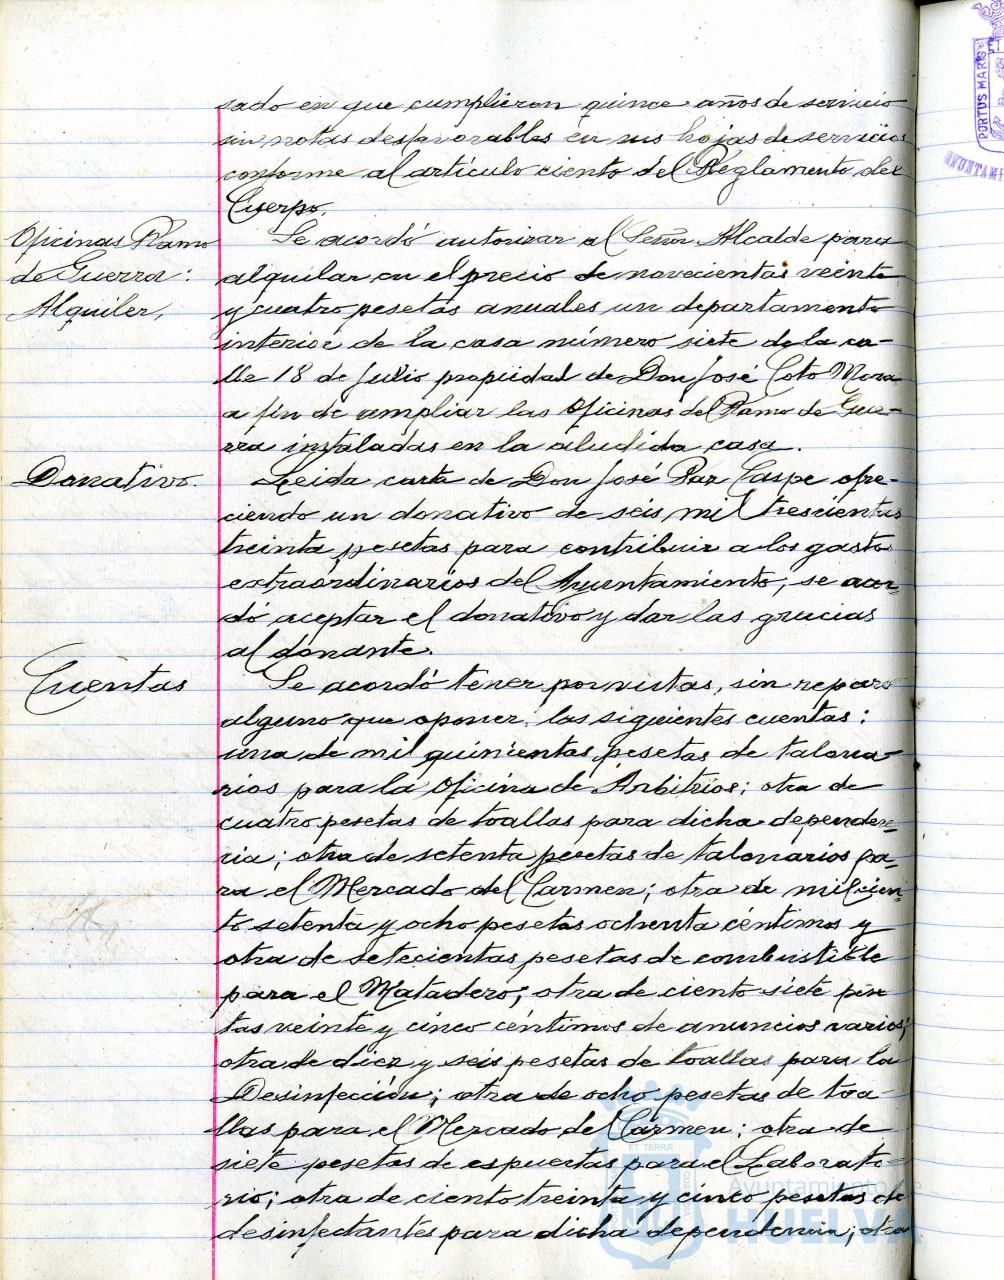 sado en que cumplieron quince años de servicio
sin notas desfavorables en sus hojas de servicios
conforme al artículo ciento del Reglamento del
Cuerpo.
Oficinas Ramo
de Guerra:
Alquiler,
Se acordó autorizar al Señor Alcalde para
alquilar en el precio de novecientas veinte
y cuatro pesetas anuales un departamento
interior de la casa número siete de la ca-
lle 18 de Julio propiedad de Don José Coto Mora
a fin de ampliar las Oficinas del Ramo de Gue-
rra instaladas en la aludida casa.
Donativo.
Leida carta de Don José Paz Gaspe ofre-
ciendo un donativo de seis mil trescientas
treinta pesetas para contribuir a los gastos
extraordinarios del Ayuntamiento, se acor-
dó aceptar el donativo y dar las gracias
al donante.
Cuentas
Se acordó tener por vistas, sin reparo
alguno que oponer, las siguientes cuentas:
una de mil quinientas pesetas de talona-
rios para la Oficina de Arbitrios; otra de
cuatro pesetas de toallas para dicha depender-
cia; otra de setenta pesetas de talonarios pa-
ra el Mercado del Carmen; otra de mil cien-
to setenta y ocho pesetas ochenta céntimos y
otra de setecientas pesetas de combustible
para el Matadero; otra de ciento siete pese
tas veinte y cinco céntimos de anuncios varios;
otra de diez y seis pesetas de toallas para la
Desinfección; otra de ocho pesetas de toa-
llas para el Mercado del Carmen; otra de
siete pesetas de espuertas para el Laborato-
rio; otra de ciento treinta y cinco pesetas de
desinfectantes para dicha dependencia; otra
PORTUS MARIS
AYUNTAMI
ET TERRÆ
Ayuntamiento de
HUELVA